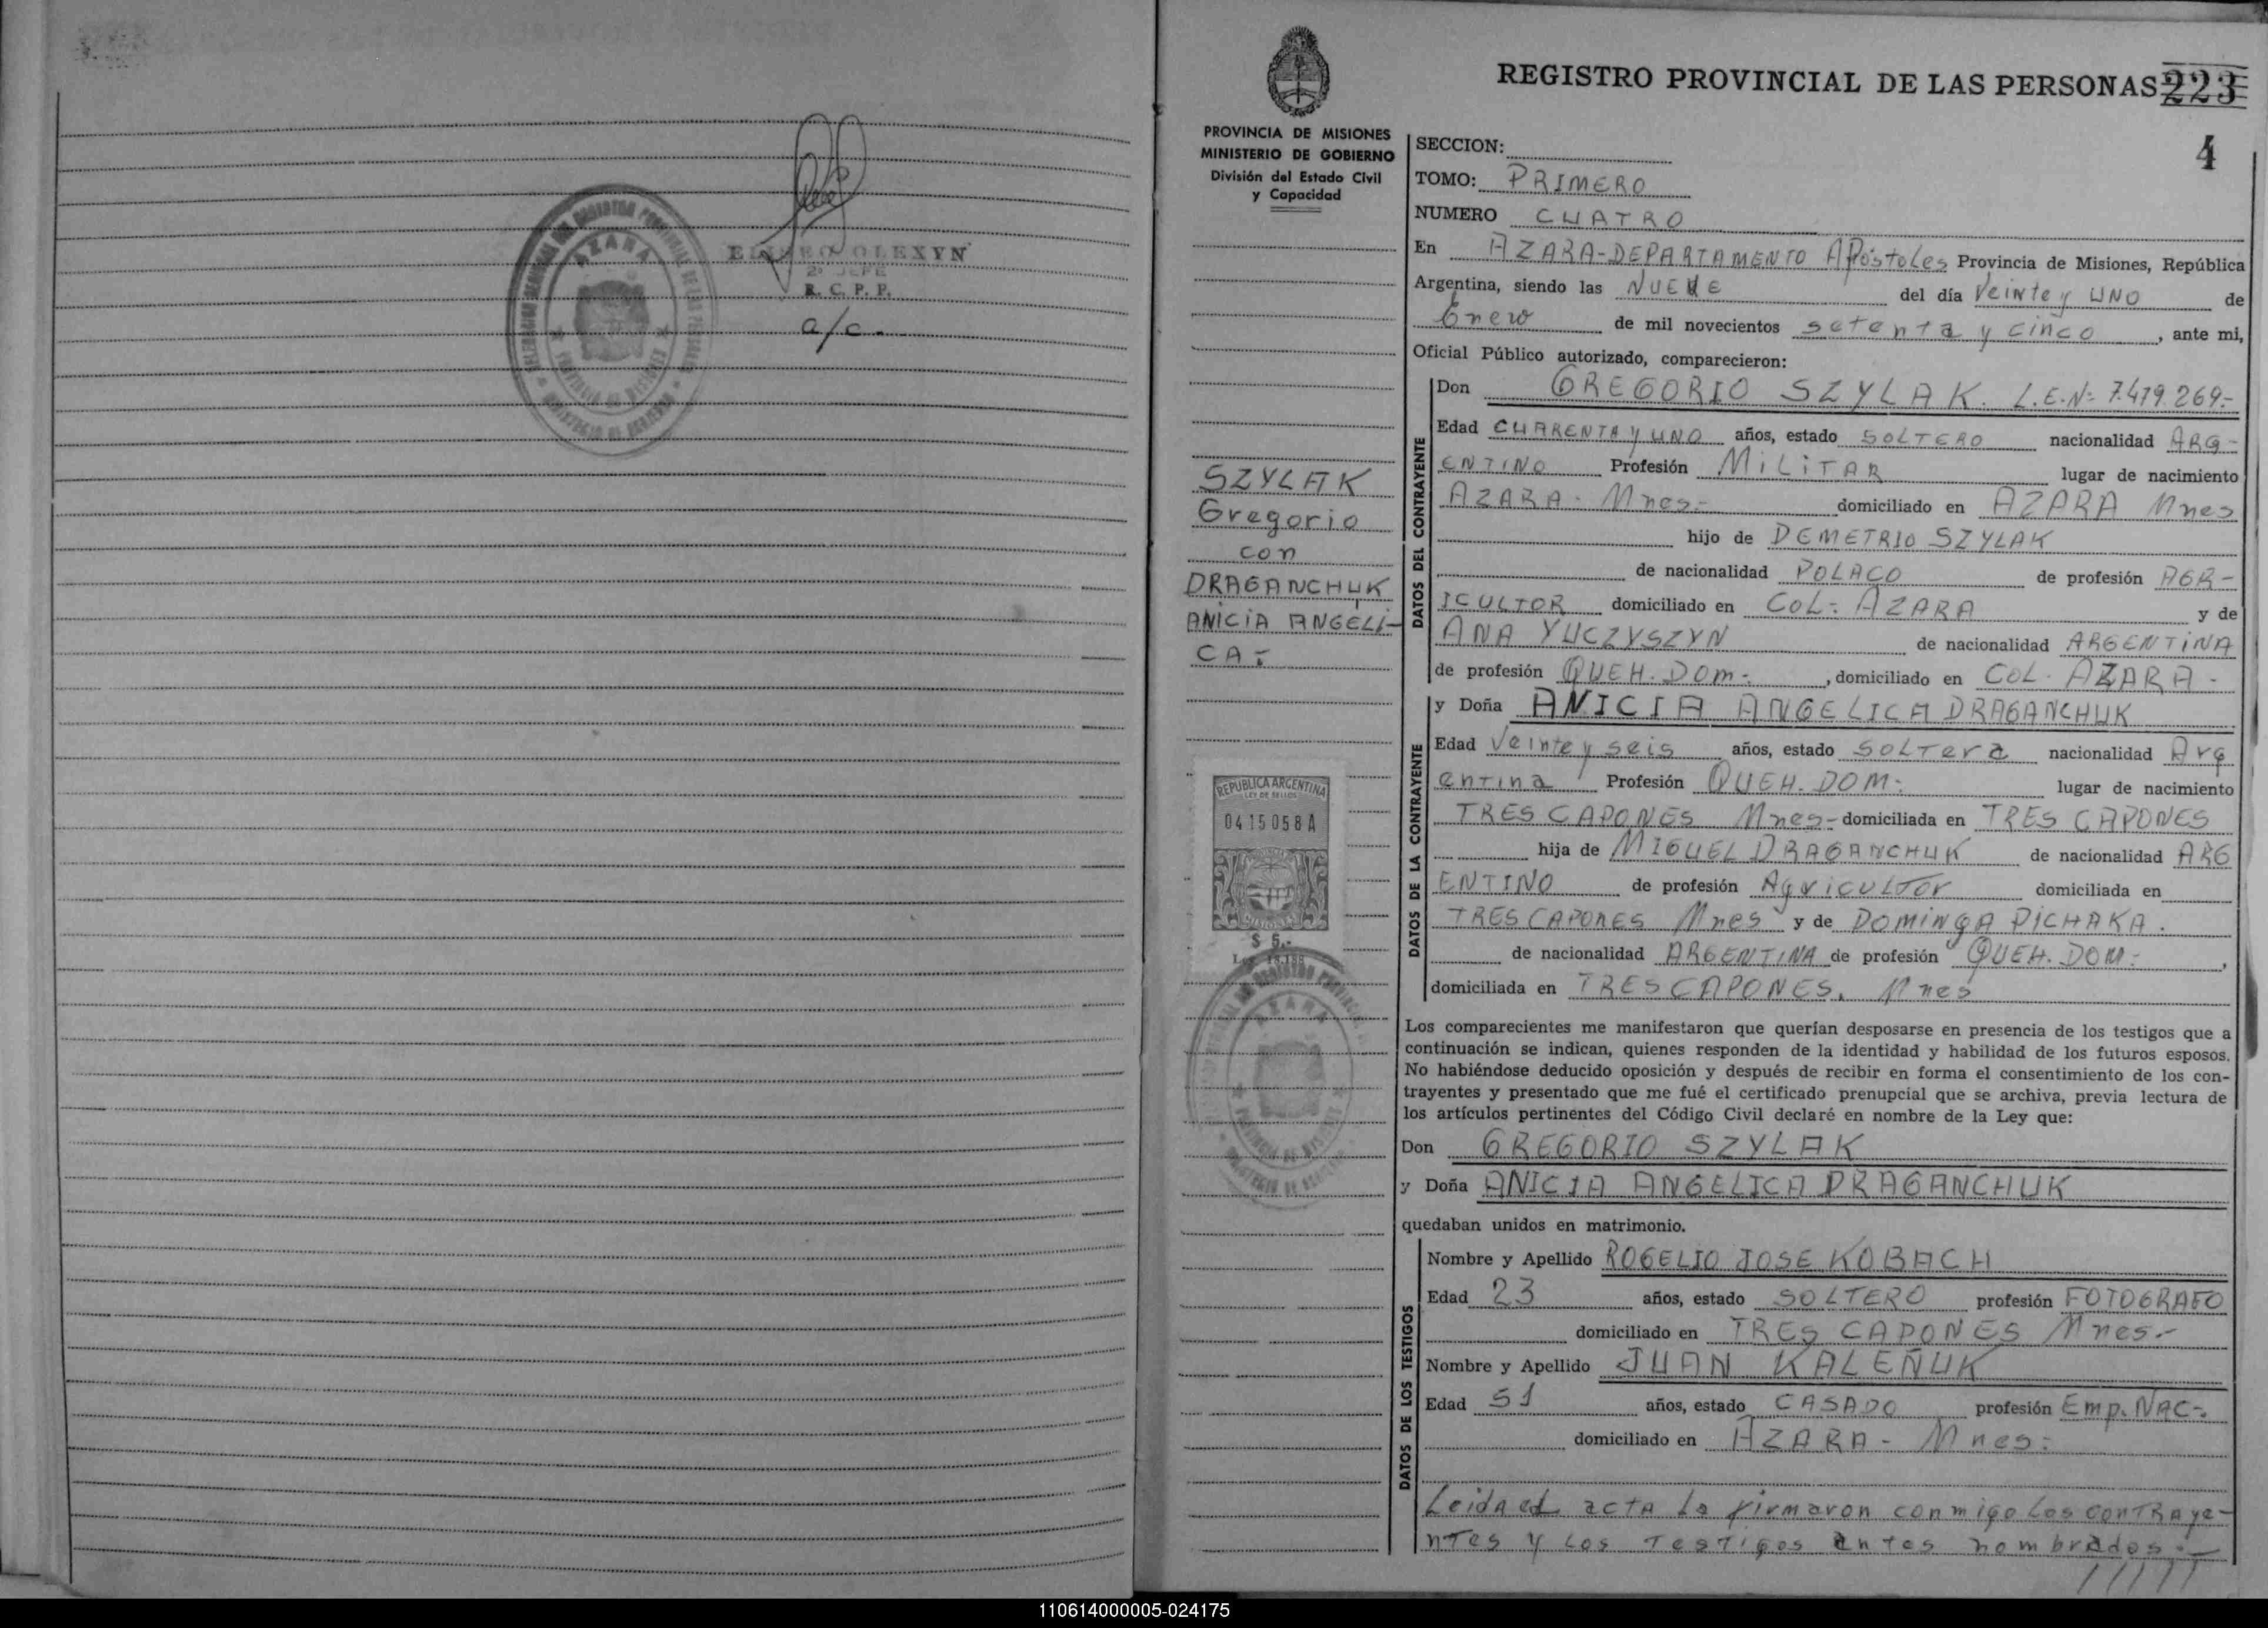 ELISEO OLEXYN
2º JEFE
R. C. P. P.
a/c.
AZARA
REGISTRO PROVINCIAL DE LAS PERSONAS 223
4
PROVINCIA DE MISIONES
MINISTERIO DE GOBIERNO
División del Estado Civil
y Capacidad
SZYLAK
Gregorio
con
DRAGANCHUK
ANICIA ANGELI-
CA.-
REPUBLICA ARGENTINA
LEY DE SELLOS
0415058A
$ 5.-
Ley 18.188
AZARA
SECCION:
TOMO: PRIMERO
NUMERO CUATRO
En AZARA-DEPARTAMENTO Apóstoles Provincia de Misiones, República
Argentina, siendo las NUEVE del día Veinte y UNO de
Enero de mil novecientos setenta y cinco, ante mi,
Oficial Público autorizado, comparecieron:
DATOS DEL CONTRAYENTE
Don GREGORIO SZYLAK. L.E.Nº 7.479.269.-
Edad CUARENTA y UNO años, estado SOLTERO nacionalidad ARG-
ENTINO Profesión MILITAR lugar de nacimiento
AZARA- Mnes.- domiciliado en AZARA Mnes
hijo de DEMETRIO SZYLAK
de nacionalidad POLACO de profesión AGR-
ICULTOR domiciliado en COL.- AZARA y de
ANA YUCZYSZYN de nacionalidad ARGENTINA
de profesión QUEH. DOM.-, domiciliado en COL. AZARA.-
DATOS DE LA CONTRAYENTE
y Doña ANICIA ANGELICA DRAGANCHUK
Edad Veinte y seis años, estado SOLTERA nacionalidad Arg
entina Profesión QUEH. DOM.- lugar de nacimiento
TRES CAPONES Mnes- domiciliada en TRES CAPONES
hija de MIGUEL DRAGANCHUK de nacionalidad ARG
ENTINO de profesión Agricultor domiciliada en
TRES CAPONES Mnes y de DOMINGA PICHAKA.
de nacionalidad ARGENTINA de profesión QUEH. DOM.-,
domiciliada en TRES CAPONES. Mnes
Los comparecientes me manifestaron que querían desposarse en presencia de los testigos que a
continuación se indican, quienes responden de la identidad y habilidad de los futuros esposos.
No habiéndose deducido oposición y después de recibir en forma el consentimiento de los con-
trayentes y presentado que me fué el certificado prenupcial que se archiva, previa lectura de
los artículos pertinentes del Código Civil declaré en nombre de la Ley que:
Don GREGORIO SZYLAK
y Doña ANICIA ANGELICA DRAGANCHUK
quedaban unidos en matrimonio.
DATOS DE LOS TESTIGOS
Nombre y Apellido ROGELIO JOSE KOBACH
Edad 23 años, estado SOLTERO profesión FOTOGRAFO
domiciliado en TRES CAPONES Mnes.-
Nombre y Apellido JUAN KALEÑUK
Edad 51 años, estado CASADO profesión Emp. NAC-.
domiciliado en AZARA - Mnes.-
Leida el acta la firmaron conmigo los contraye-
ntes y los testigos antes nombrados.-
110614000005-024175